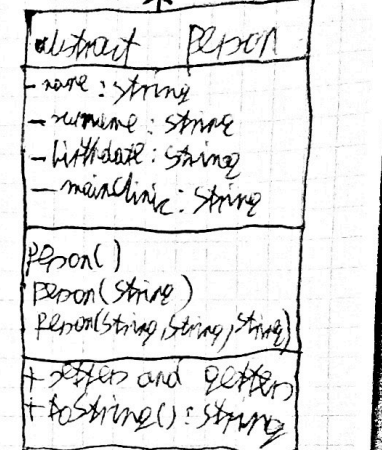 abstract Person
- name : String
- surname : String
- birthdate : String
- mainClinic : String
Person()
Person(String)
Person(String, String, String)
+ setters and getters
+ toString() : String